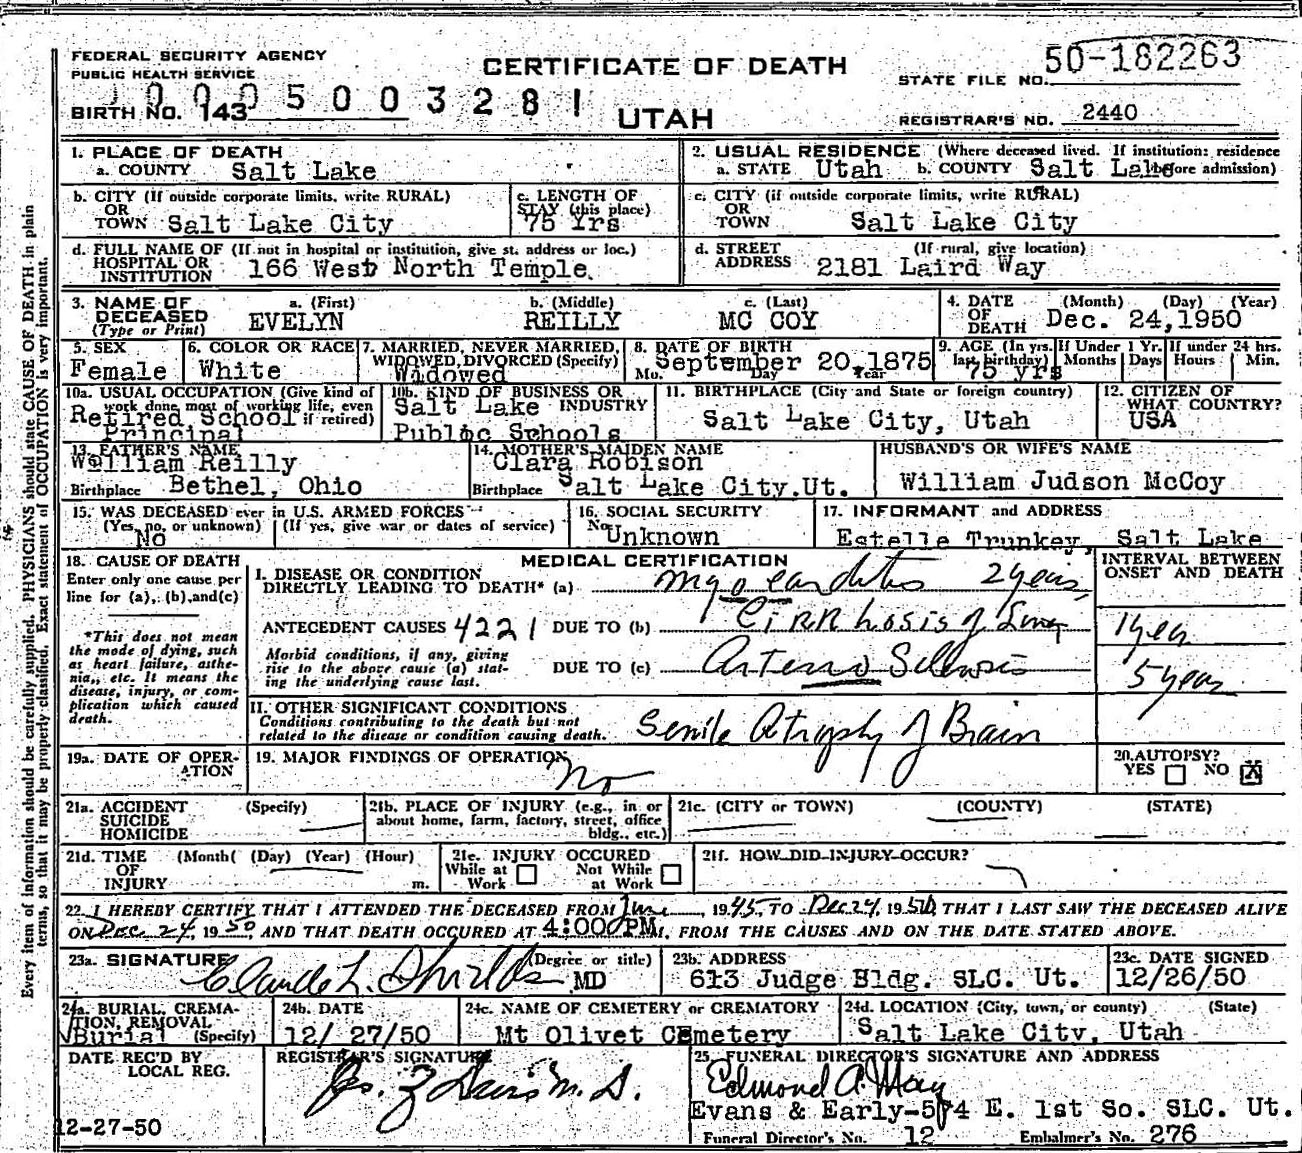 FEDERAL SECURITY AGENCY
PUBLIC HEALTH SERVICE
CERTIFICATE OF DEATH
STATE FILE NO. 50-182263
BIRTH NO. 143
0005003281
UTAH
REGISTRAR'S NO. 2440
1. PLACE OF DEATH
a. COUNTY Salt Lake
2. USUAL RESIDENCE (Where deceased lived. If institution: residence before admission)
a. STATE Utah b. COUNTY Salt Lake
b. CITY (If outside corporate limits, write RURAL)
OR
TOWN Salt Lake City
c. LENGTH OF
STAY (this place)
75 Yrs
c. CITY (if outside corporate limits, write RURAL)
OR
TOWN Salt Lake City
d. FULL NAME OF (If not in hospital or institution, give st. address or loc.)
HOSPITAL OR
INSTITUTION 166 West North Temple.
d. STREET (If rural, give location)
ADDRESS 2181 Laird Way
3. NAME OF
DECEASED
(Type or Print)
a. (First) b. (Middle) c. (Last)
EVELYN REILLY MC COY
4. DATE (Month) (Day) (Year)
OF
DEATH Dec. 24,1950
5. SEX
Female
6. COLOR OR RACE
White
7. MARRIED, NEVER MARRIED,
WIDOWED, DIVORCED (Specify)
Widowed
8. DATE OF BIRTH
September 20,1875
Mo. Day Year
9. AGE (In yrs.
last birthday)
75 yrs
If Under 1 Yr.
Months Days
If under 24 hrs.
Hours Min.
10a. USUAL OCCUPATION (Give kind of
work done most of working life, even
if retired)
Retired School
Principal
10b. KIND OF BUSINESS OR
INDUSTRY
Salt Lake
Public Schools
11. BIRTHPLACE (City and State or foreign country)
Salt Lake City, Utah
12. CITIZEN OF
WHAT COUNTRY?
USA
13. FATHER'S NAME
William Reilly
Birthplace Bethel, Ohio
14. MOTHER'S MAIDEN NAME
Clara Robison
Birthplace Salt Lake City.Ut.
HUSBAND'S OR WIFE'S NAME
William Judson McCoy
15. WAS DECEASED ever in U.S. ARMED FORCES
(Yes, no, or unknown) (If yes, give war or dates of service)
No
16. SOCIAL SECURITY
No.
Unknown
17. INFORMANT and ADDRESS
Estelle Trunkey, Salt Lake
18. CAUSE OF DEATH
Enter only one cause per
line for (a), (b), and (c)
*This does not mean
the mode of dying, such
as heart failure, asthe-
nia, etc. It means the
disease, injury, or com-
plication which caused
death.
MEDICAL CERTIFICATION
I. DISEASE OR CONDITION
DIRECTLY LEADING TO DEATH* (a) Myocarditis 2 years,
ANTECEDENT CAUSES 4221 DUE TO (b) Cirrhosis of
Morbid conditions, if any, giving
rise to the above cause (a) stat-
ing the underlying cause last.
DUE TO (c) Arterio Sclerosis
INTERVAL BETWEEN
ONSET AND DEATH
1 year
5 years
II. OTHER SIGNIFICANT CONDITIONS
Conditions contributing to the death but not
related to the disease or condition causing death.
Senile Atrophy of Brain
19a. DATE OF OPER-
ATION
19. MAJOR FINDINGS OF OPERATION
No
20. AUTOPSY?
YES NO X
21a. ACCIDENT (Specify)
SUICIDE
HOMICIDE
21b. PLACE OF INJURY (e.g., in or
about home, farm, factory, street, office
bldg., etc.)
21c. (CITY or TOWN) (COUNTY) (STATE)
21d. TIME (Month( (Day) (Year) (Hour)
OF
INJURY m.
21e. INJURY OCCURED
While at Work Not While at Work
21f. HOW DID INJURY OCCUR?
22. I HEREBY CERTIFY THAT I ATTENDED THE DECEASED FROM June, 1945, TO Dec 24, 1950, THAT I LAST SAW THE DECEASED ALIVE
ON Dec. 24, 1950, AND THAT DEATH OCCURED AT 4:00 PM., FROM THE CAUSES AND ON THE DATE STATED ABOVE.
23a. SIGNATURE (Degree or title)
Claude L. Shields MD
23b. ADDRESS
613 Judge Bldg. SLC. Ut.
23c. DATE SIGNED
12/26/50
24a. BURIAL, CREMA-
TION, REMOVAL
(Specify)
Burial
24b. DATE
12/27/50
24c. NAME OF CEMETERY or CREMATORY
Mt Olivet Cemetery
24d. LOCATION (City, town, or county) (State)
Salt Lake City, Utah
DATE REC'D BY
LOCAL REG.
12-27-50
REGISTRAR'S SIGNATURE
M.D.
25. FUNERAL DIRECTOR'S SIGNATURE AND ADDRESS
Edmond A. May
Evans & Early-574 E. 1st So. SLC. Ut.
Funeral Director's No. 12 Embalmer's No. 276
Every item of information should be carefully supplied. PHYSICIANS should state CAUSE OF DEATH in plain
terms, so that it may be properly classified. Exact statement of OCCUPATION is very important.